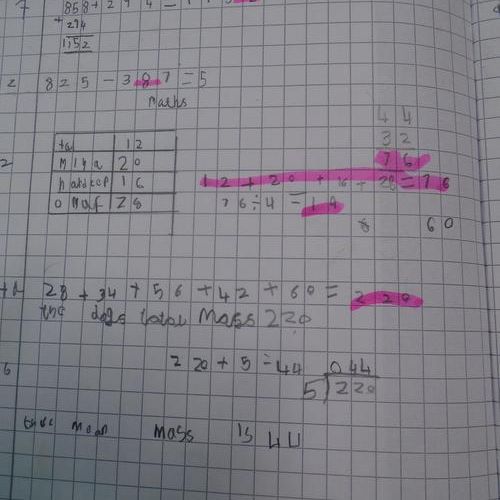 7 858 + 294 =
+ 294
1152
2 825 - 387 = 5
Maths
44
32
76
12
20
16
28
12 + 20 + 16 + 28 = 76
76 ÷ 4 = 19
8 60
28 + 34 + 56 + 42 + 60 = 220
the dogs total mass 220
220 ÷ 5 = 44
044
5 220
6
mean mass is 44